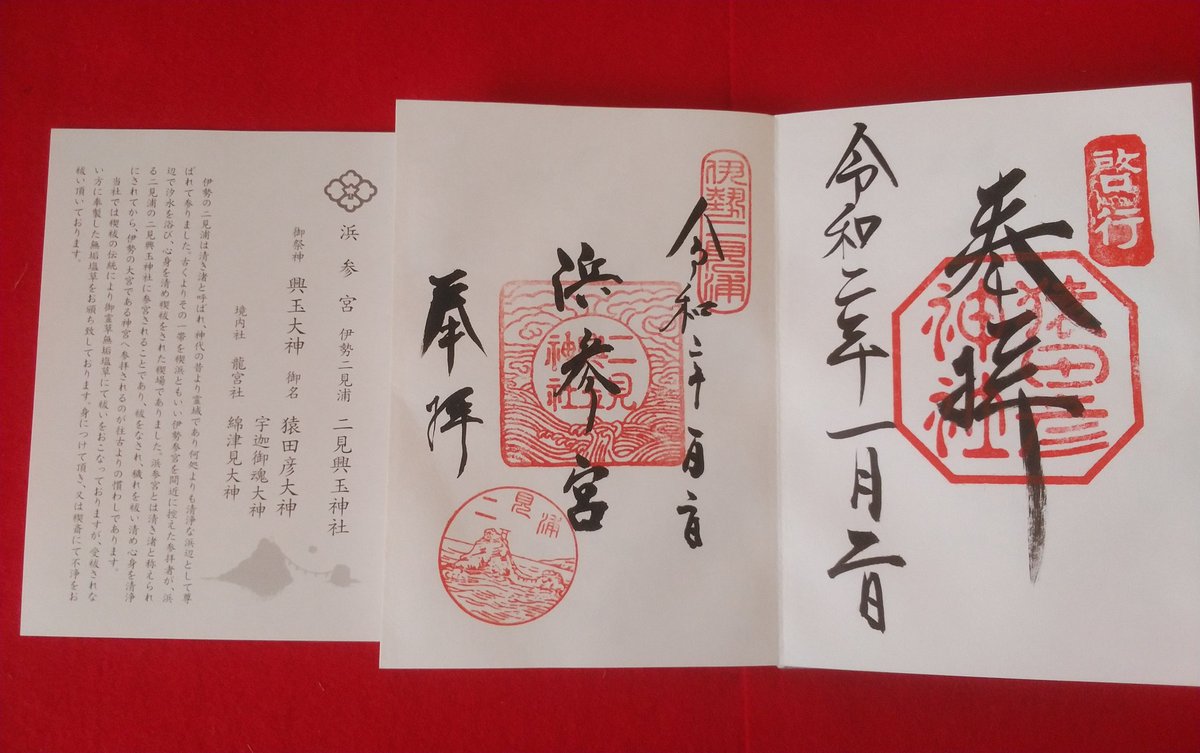 啓行
奉拝
猿田彦
神社
令和二年一月二日
伊勢二見浦
令和二年一月二日
浜参宮
二見
神社
奉拝
二見浦
浜参宮 伊勢二見浦 二見興玉神社
御祭神 興玉大神 御名 猿田彦大神
宇迦御魂大神
境内社 龍宮社 綿津見大神
伊勢の二見浦は清き渚と呼ばれ、神代の昔より霊域であり何処よりも清浄な浜辺として尊
ばれて参りました。古くよりその一帯を禊浜ともいい伊勢参宮を間近に控えた参拝者が、浜
辺で汐水を浴び、心身を清め禊祓をされた禊場でありました。浜参宮とは清き渚と称えられ
る二見浦の二見興玉神社に参宮されることであり、祓をなされ、穢れを祓い清め心身を清浄
にされてから、伊勢の大宮である神宮へ参拝されるのが往古よりの慣わしであります。
当社では禊祓の伝統により御霊草無垢塩草にて祓いをおこなっておりますが、受祓されな
い方に奉製した無垢塩草をお頒ち致しております。身につけて頂き、又は禊斎にて不浄をお
祓い頂いております。